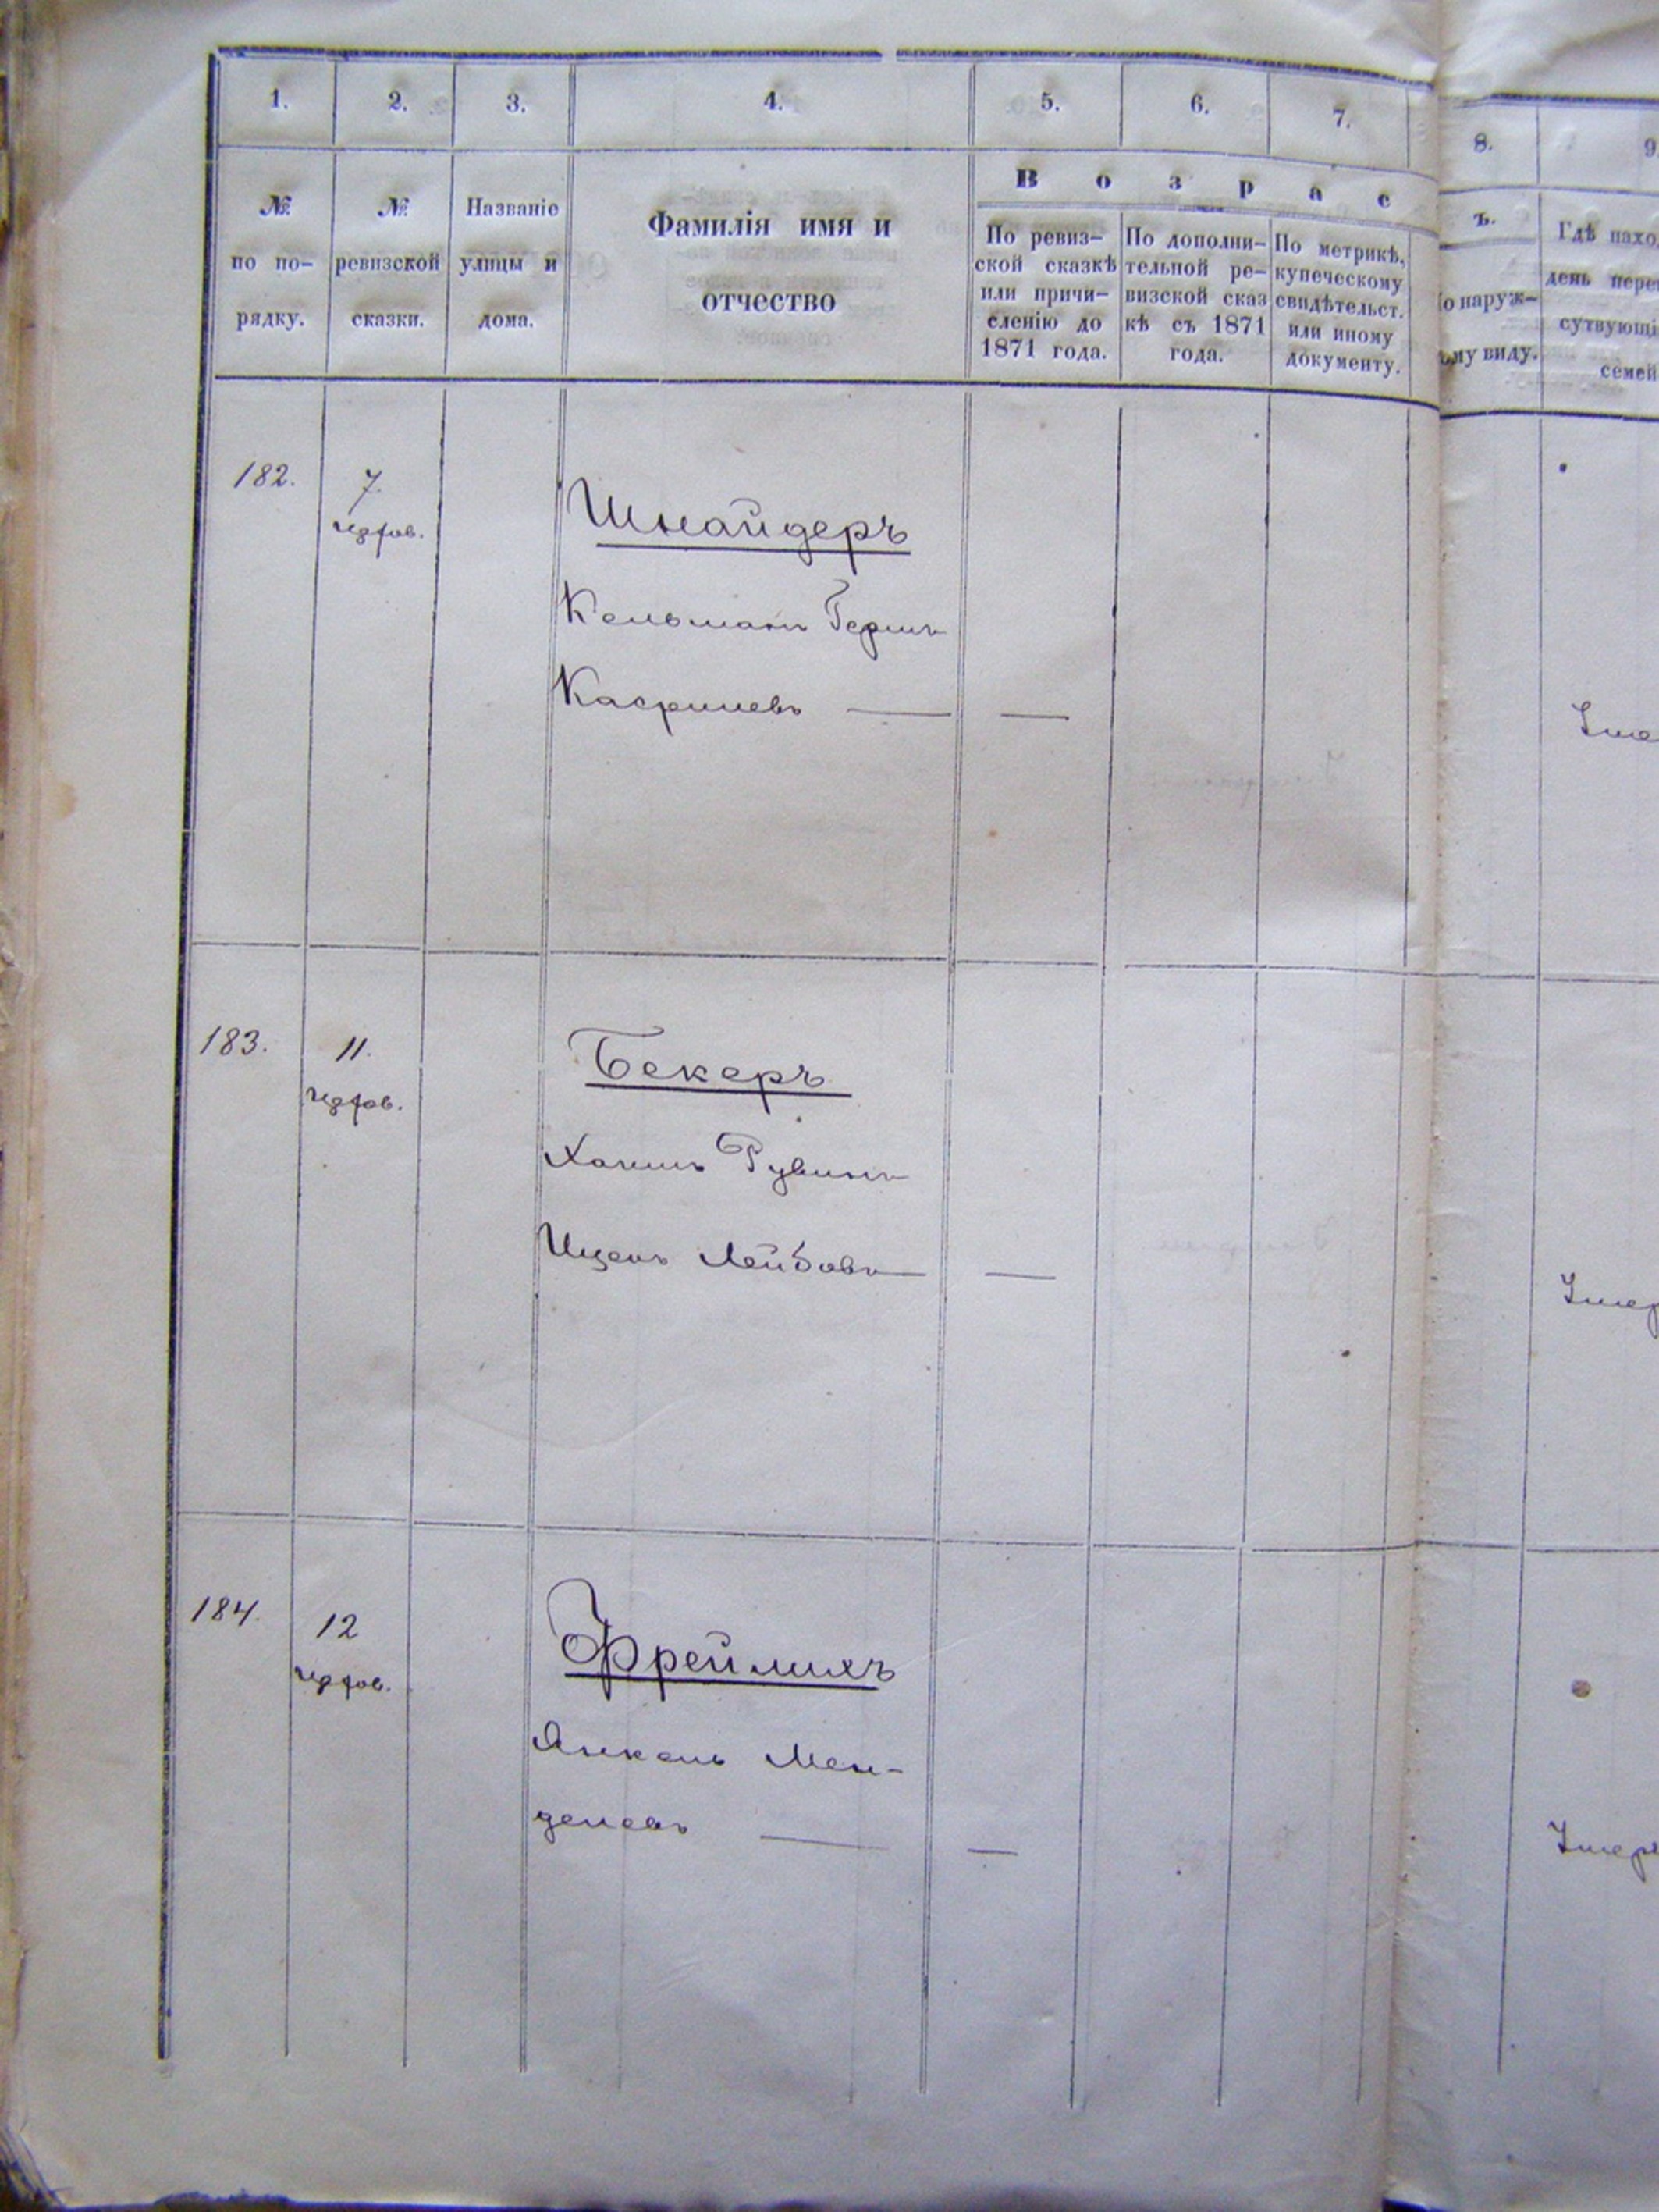 1. 2. 3. 4. 5. 6. 7. 8. 9.
№ по по-рядку.
№ ревизской сказки.
Названіе улицы и дома.
Фамилія имя и
отчество
В о з р а с
ъ.
По ревиз-
ской сказкѣ
или причи-
сленію до
1871 года.
По дополни-
тельной ре-
визской сказ
кѣ съ 1871
года.
По метрикѣ,
купеческому
свидѣтельст.
или иному
документу.
о наруж-
му виду.
Гдѣ нахо
день пере
сутвующі
семей
182. 7
Шнайдеръ
Кельманъ Гершъ
Касрилевъ
Уме
183. 11.
Бекеръ
Хаимъ Рувинъ
Ицекъ Лейбовъ
Умер
184. 12
Фреймихъ
Янкель Мен-
делевъ
Умер